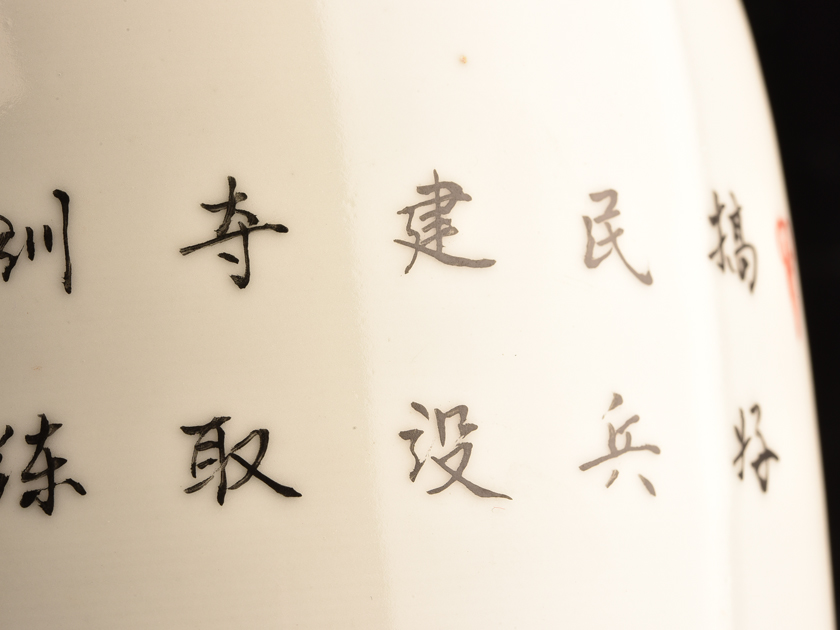 搞好
民兵
建设
夺取
训练